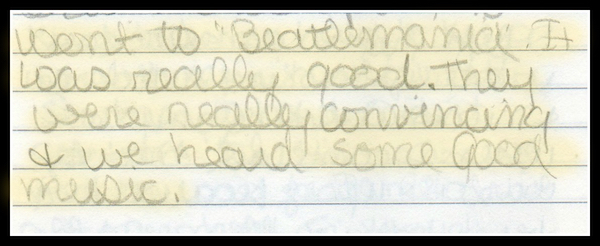 went to "Beatlemania". It
was really good. They
were really, convincing
& we heard some good
music.